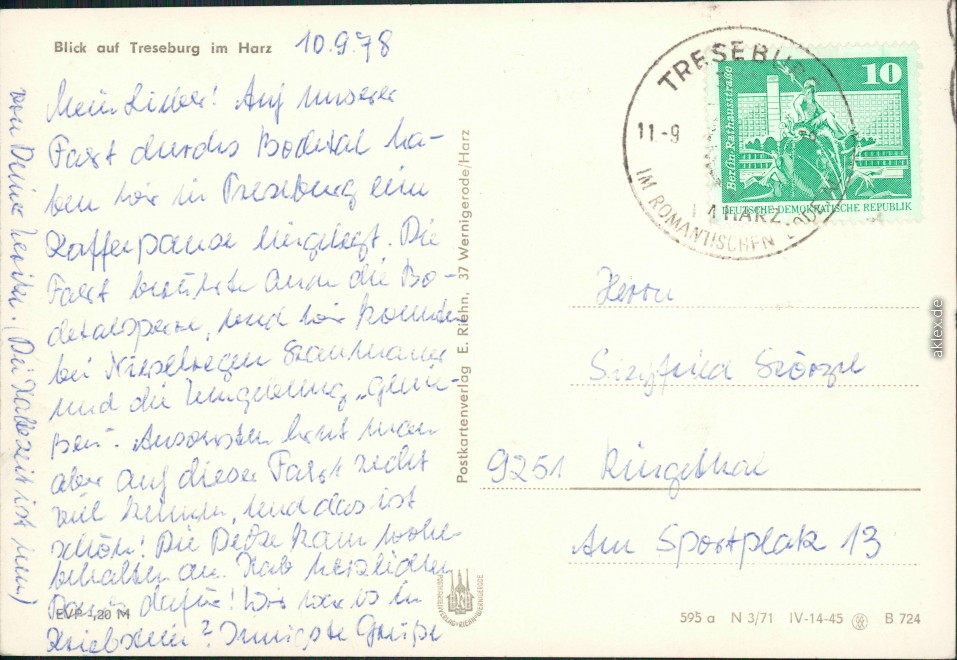 Blick auf Treseburg im Harz
10.9.78
Mein Lieber! Auf unserer
Fahrt durchs Bodetal ha-
ben wir in Treseburg eine
Kaffeepause eingelegt. Die
Fahrt berührte auch die Bo-
detalsperre, und wir konnten
bei Nieselregen Staumauer
und die Umgebung „genie-
ßen". Ansonsten lernt man
aber auf dieser Fahrt recht
viel kennen, und das ist
schön! Die Decke kam wohl-
behalten an. Hab herzlichen
Dank dafür! Wie war es in
Kriebstein? Innigste Grüße
von Deiner
ist um)
EVP -,20 M
Postkartenverlag E. Riehn, 37 Wernigerode/Harz
TRESEBURG
11-9
IM HARZ
IM ROMANTISCHEN BODETAL
10
Berlin-Rathausstraße
DEUTSCHE DEMOKRATISCHE REPUBLIK
Herrn
Siegfried Störzel
9251 Ringethal
Am Sportplatz 13
595 a N 3/71 IV-14-45 B 724
aklex.de